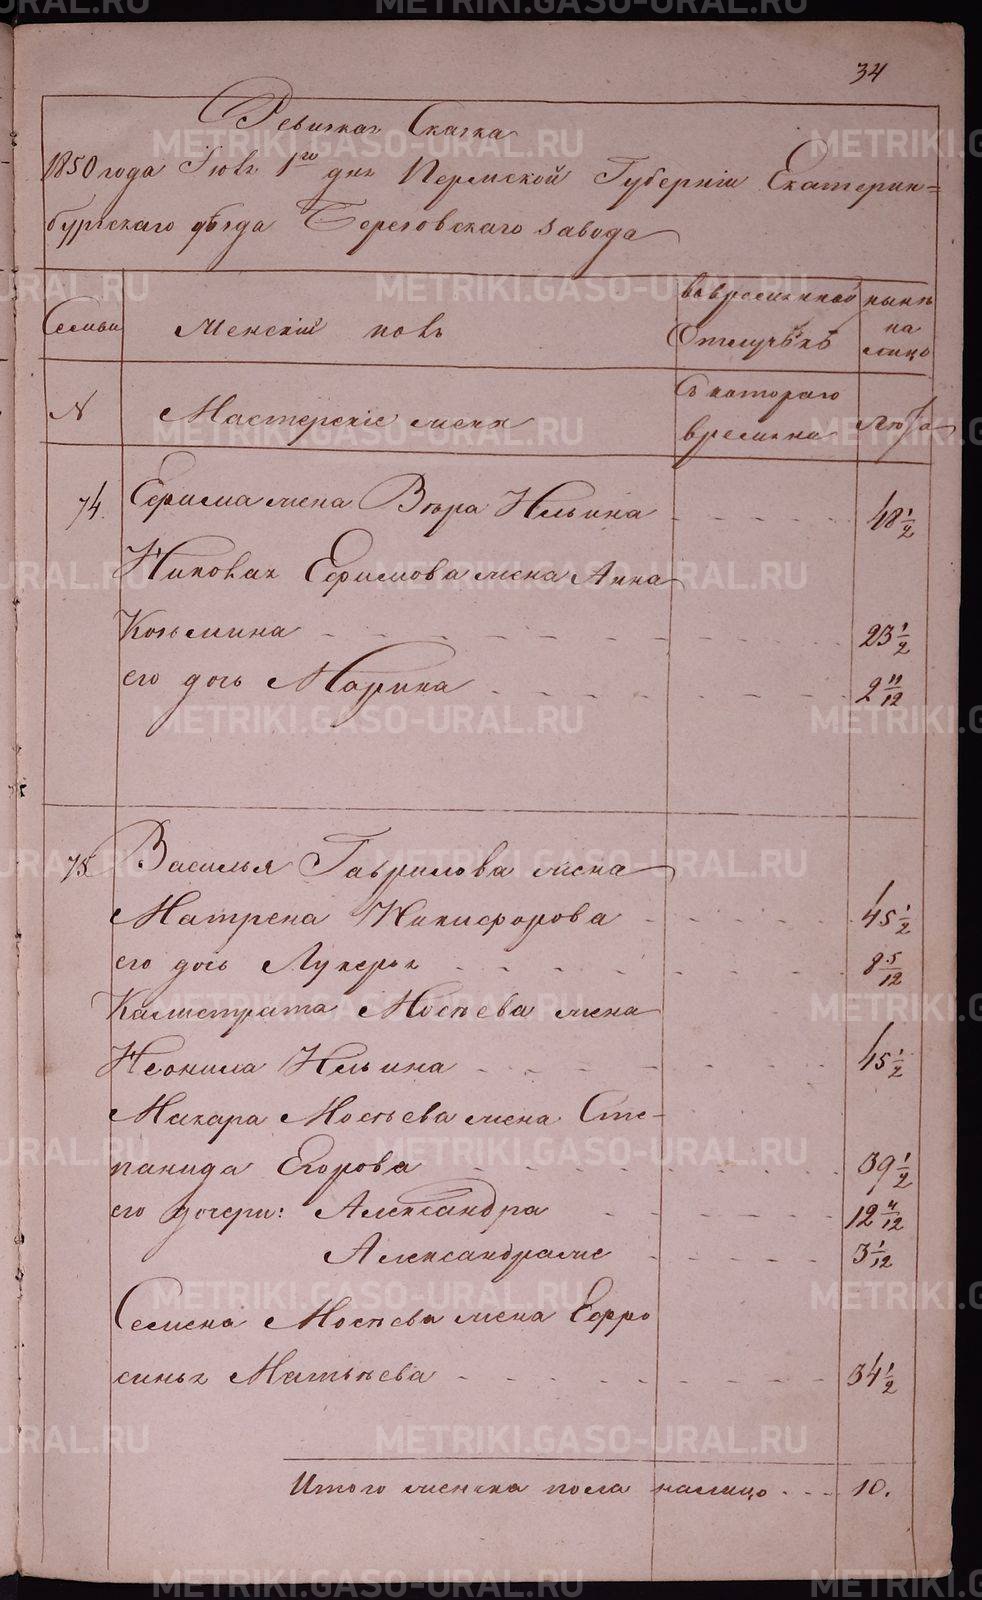 34
Ревизкая Сказка
1850 года Июнь 1го дня Пермской Губернiи Екатерин=
бургскаго уѣзда Березовскаго завода
Семьи
Женскiй полъ
во временной
Отлучькѣ
нынѣ
на
лицо
N
Мастерскiе жены
Съ котораго
времини
Лѣта
74.
Ефима жена Вѣра Ильина
48 1/2
Николая Ефимова жена Анна
Козьмина
23 1/2
его дочь Марина
2 11/12
75
Василья Гаврилова жена
Матрена Никифорова
45 1/2
его дочь Лукерья
8 5/12
Калистрата Мосѣева жена
Неонила Ильина
45 1/2
Макара Мосѣева жена Сте-
панида Егорова
39 1/2
его дочери: Александра
12 4/12
Александра же
3 1/12
Семена Мосѣева жена Ефро
синья Матвѣева
34 1/2
Итого женска пола налицо
10.
METRIKI.GASO-URAL.RU